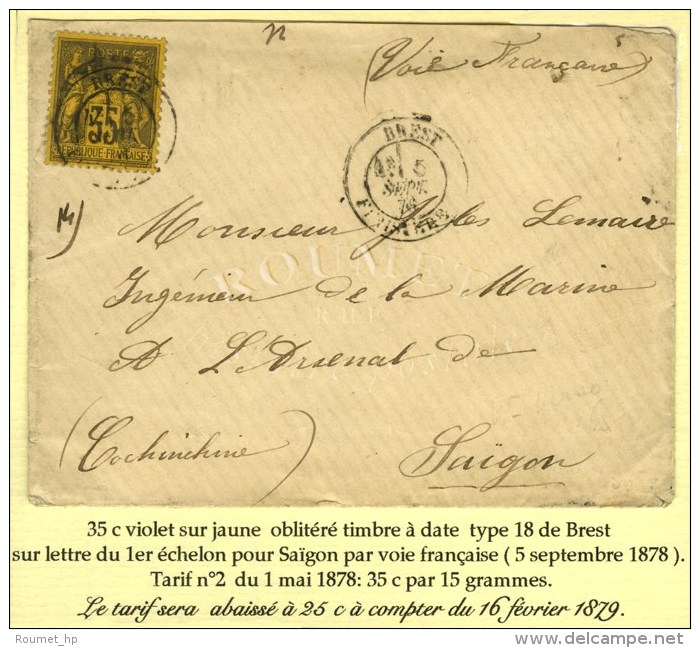 POSTE
35
REPUBLIQUE FRANÇAISE
BREST
(Voie Française)
BREST
5
SEPT
78
FINISTERE
Monsieur Jules Lemaire
Ingénieur de la Marine
A L'Arsenal de
(Cochinchine) Saïgon
ROUMET
35 c violet sur jaune oblitéré timbre à date type 18 de Brest
sur lettre du 1er échelon pour Saïgon par voie française ( 5 septembre 1878 ).
Tarif n°2 du 1 mai 1878: 35 c par 15 grammes.
Le tarif sera abaissé à 25 c à compter du 16 février 1879.
Roumet_hp
delcampe.net